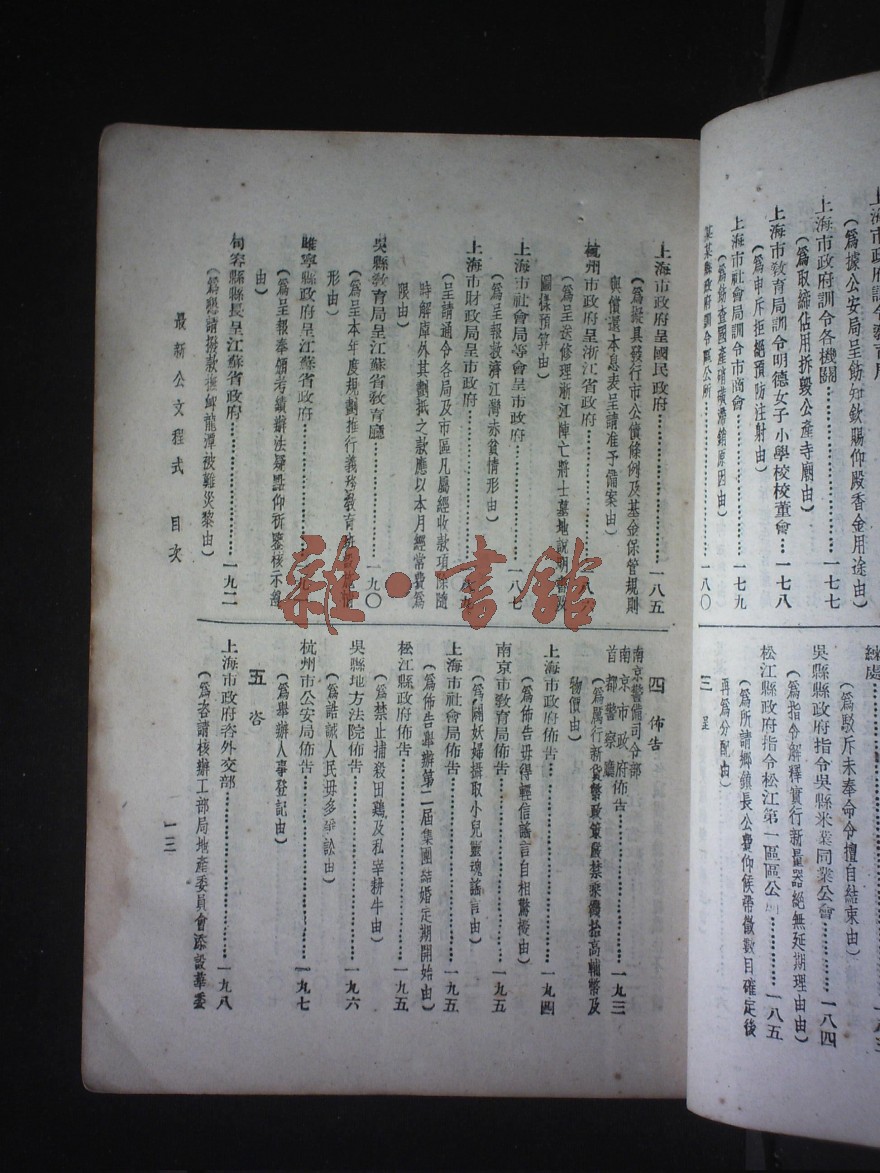 上海市政府訓令各機關
(爲據公安局呈飭知欽賜仰殿香金用途由)
上海市政府訓令各機關…………一七七
(爲取締佔用拆毀公產寺廟由)
上海市教育局訓令明德女子小學校校董會…一七八
(爲申斥拒絕預防注射由)
上海市社會局訓令市商會…………一七九
(爲飭查國產硝磺滯銷原因由)
某某縣政府訓令區公所…………一八〇
(爲駁斥未奉命令擅自結束由)
吳縣縣政府指令吳縣米業同業公會…………一八四
(爲指令解釋實行新量器絕無延期理由由)
松江縣政府指令松江第一區區公所…………一八五
(爲所請鄉鎮長公費仰候帶徵數目確定後
再爲分配由)
三 呈
上海市政府呈國民政府…………一八五
(爲擬具發行市公債條例及基金保管規則
與償還本息表呈請准予備案由)
杭州市政府呈浙江省政府…………一八
(爲呈送修理浙江陣亡將士墓地說明書及
圖樣預算由)
上海市社會局等會呈市政府…………一八七
(爲呈報救濟江灣赤貧情形由)
上海市財政局呈市政府…………
(呈請通令各局及市區凡屬經收款項除隨
時解庫外其劃抵之款應以本月經常費爲
限由)
吳縣教育局呈江蘇省教育廳…………一九〇
(爲呈本年度規劃推行義務教育
形由)
睢寧縣政府呈江蘇省政府…………一九
(爲呈報奉頒考績辦法疑點仰祈鑒核示遵
由)
句容縣縣長呈江蘇省政府…………一九二
(爲懇請撥款撫卹龍潭被難災黎由)
四 佈告
南京警備司令部
南京市政府佈告…………一九三
首都警察廳
(爲厲行新貨幣政策嚴禁乘機抬高輔幣及
物價由)
上海市政府佈告…………一九四
(爲佈告毋得輕信謠言自相驚擾由)
南京市教育局佈告…………一九五
(爲闢妖婦攝取小兒靈魂謠言由)
上海市社會局佈告…………一九五
(爲佈告舉辦第二屆集團結婚定期開始由)
松江縣政府佈告…………一九五
(爲禁止捕殺田鷄及私宰耕牛由)
吳縣地方法院佈告…………一九六
(爲誥誡人民毋多訴訟由)
杭州市公安局佈告…………一九七
(爲舉辦人事登記由)
五 咨
上海市政府咨外交部…………一九八
(爲咨請核辦工部局地產委員會添設華委
最新公文程式 目次
一三
雜·書館